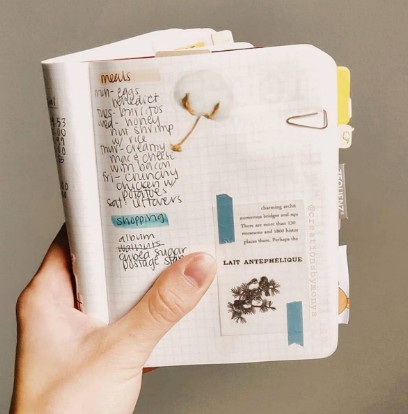 meals
mon- eggs
benedict
tues- burritos
wed- honey
nut shrimp
w/ rice
thur- creamy
mac & cheese
with bacon
fri- crunchy
chicken w/
potatoes
sat- leftovers
shopping
album
walnuts
cubed sugar
postage
charming archit
numerous bridges and squ
There are more than 150
monuments and 1800 histo
places there. Perhaps the
LAIT ANTEPHÉLIQUE
53
00
99